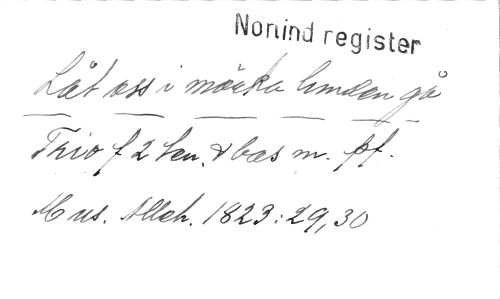 Nonind register
Låt oss i mörka lunden gå
Trio f 2 ten. & bas m. pf.
Mus. Alleh. 1823:29,30